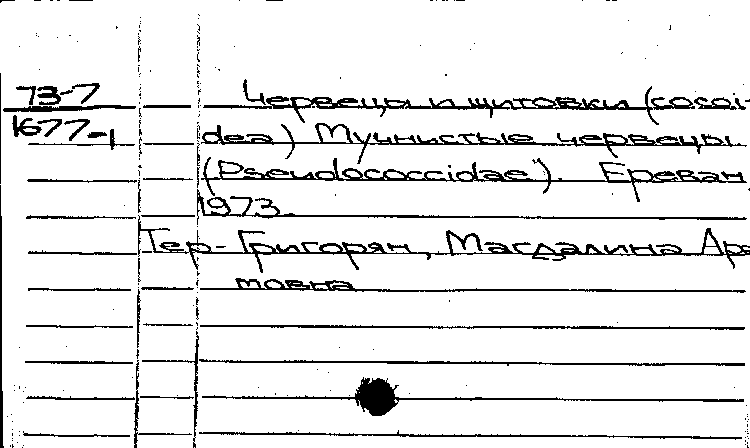 73-7
1677-1
Червецы и щитовки (cocoi-
dea) Мучнистые червецы
(Pseudococcidae). Ереван,
1973.
Тер-Григорян, Магдалина Ара-
мовна